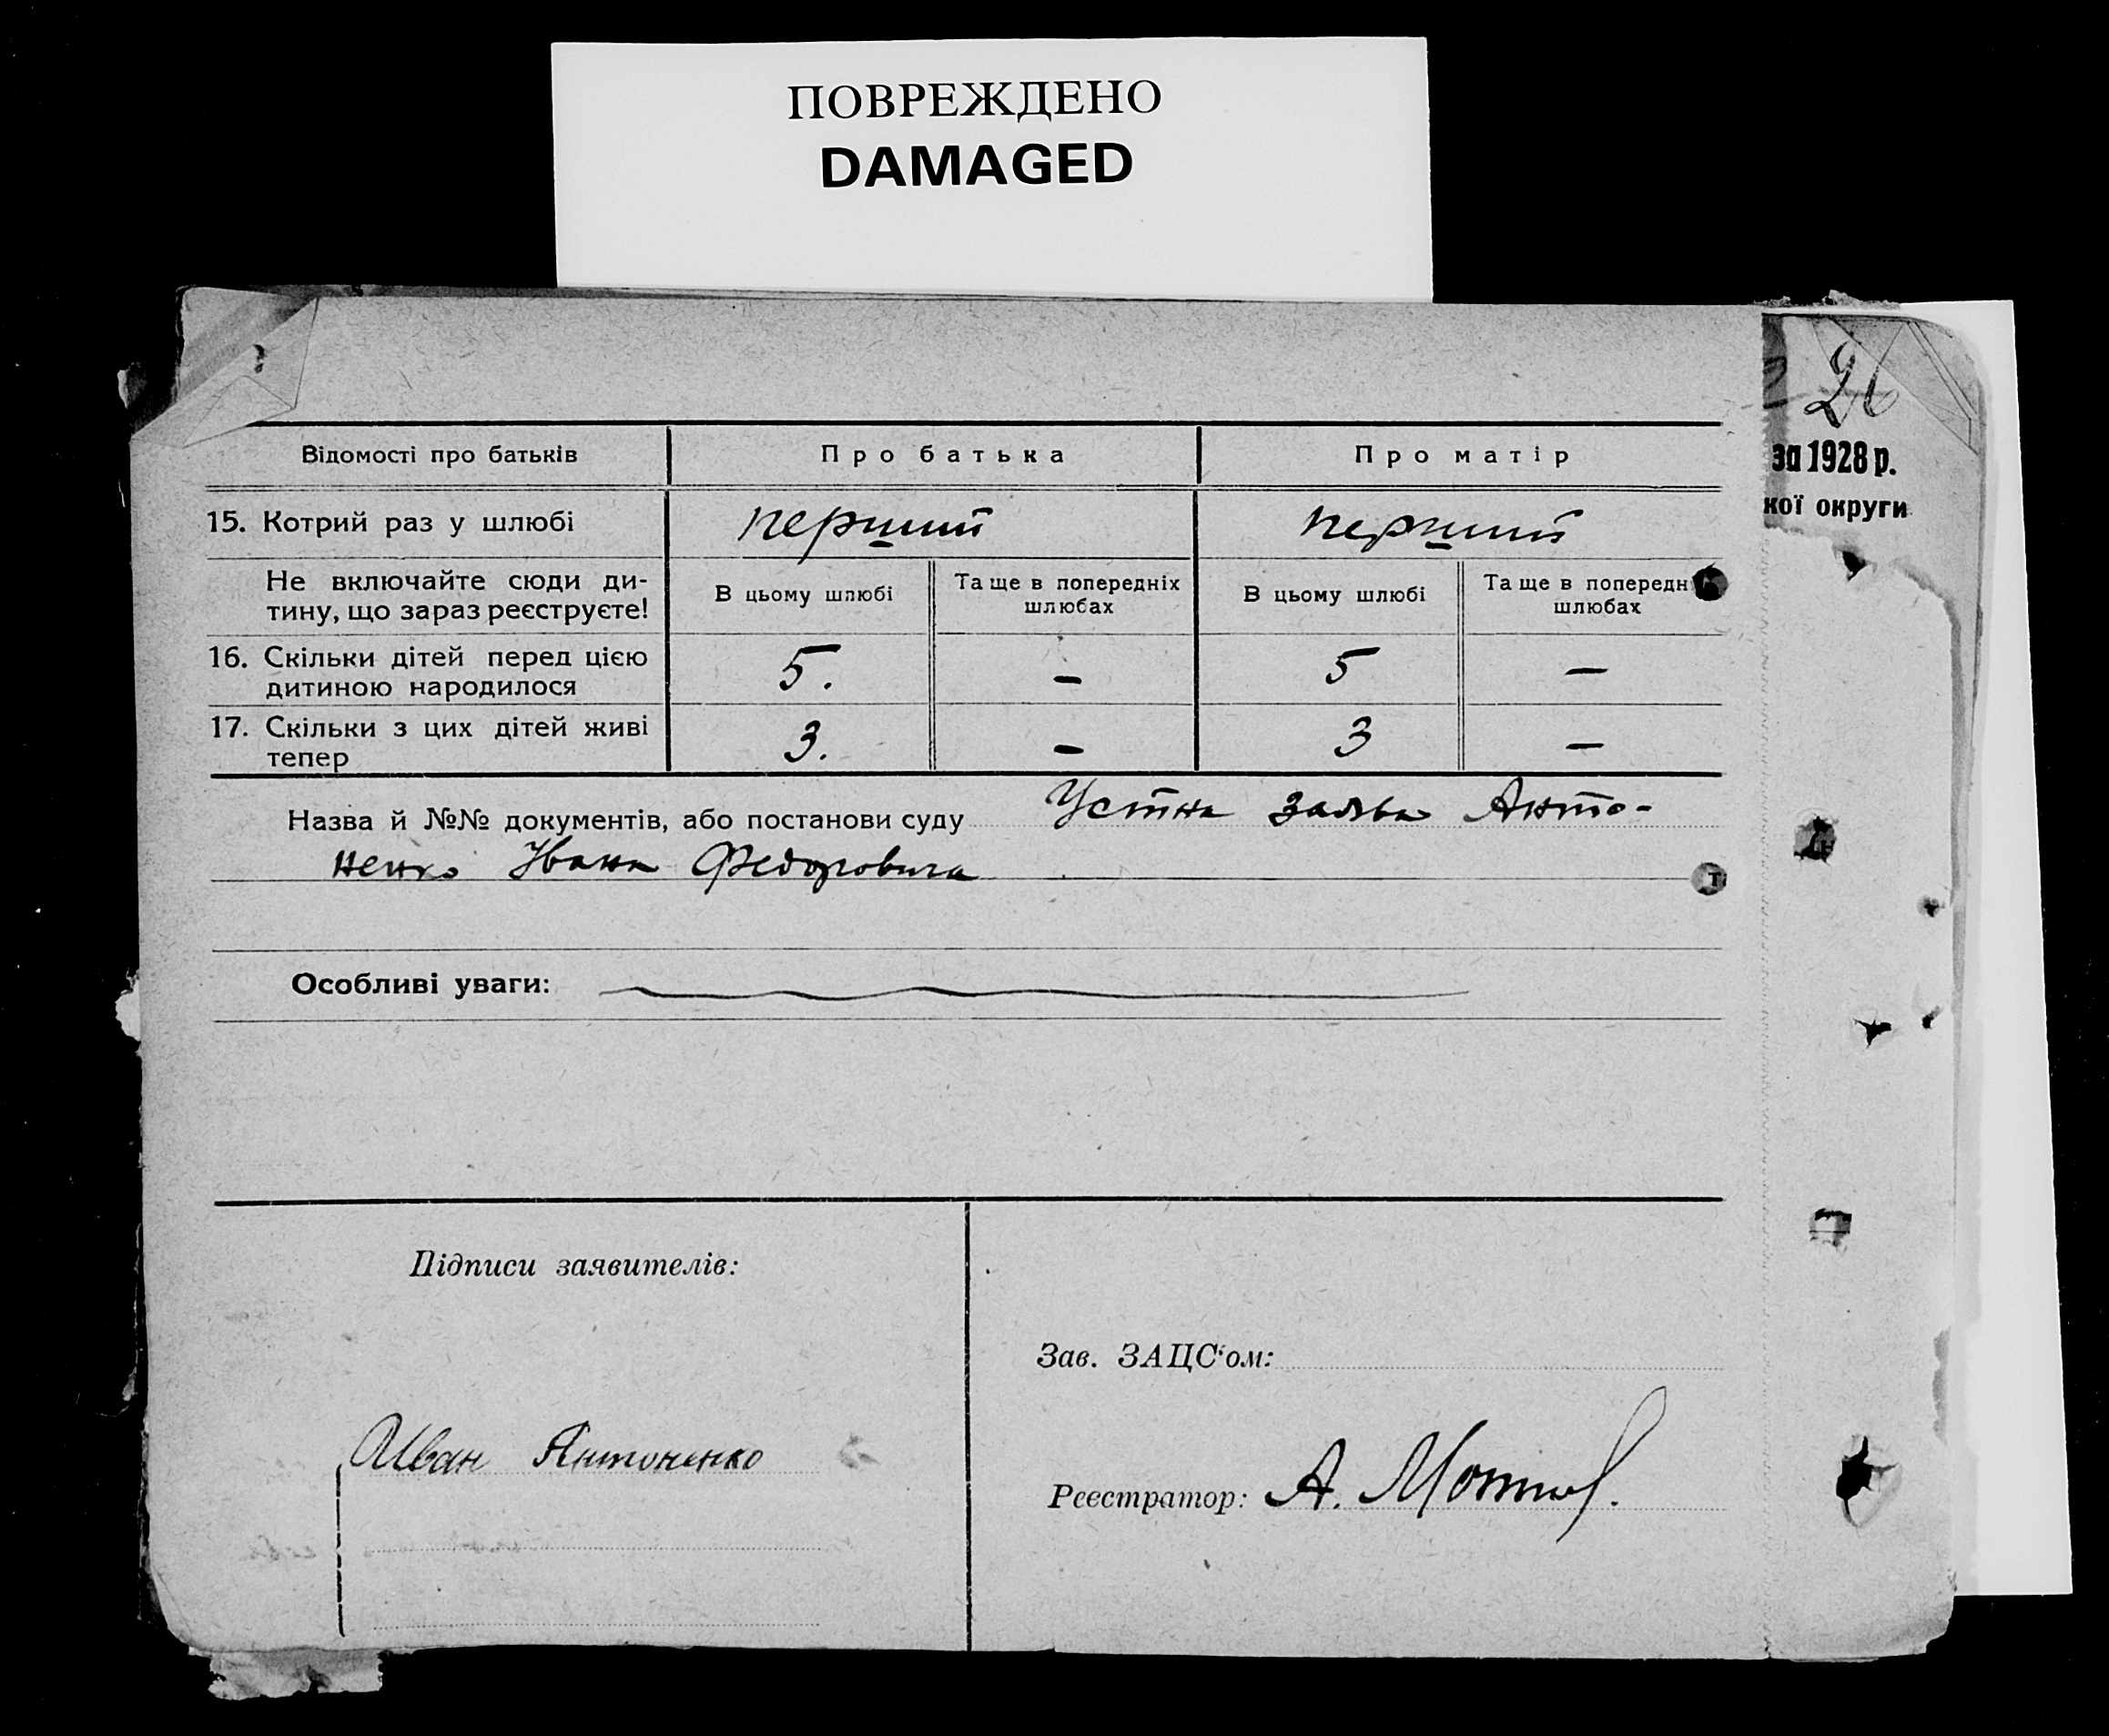 ПОВРЕЖДЕНО
DAMAGED
26
за 1928 р.
кої округи
Відомості про батьків
Про батька
Про матір
15. Котрий раз у шлюбі
перший
перший
Не включайте сюди ди-
тину, що зараз реєструєте!
В цьому шлюбі
Та ще в попередніх
шлюбах
В цьому шлюбі
Та ще в попередн
шлюбах
16. Скільки дітей перед цією
дитиною народилося
5.
–
5
–
17. Скільки з цих дітей живі
тепер
3.
–
3
–
Назва й №№ документів, або постанови суду Устна заява Анто-
ненко Івана Федоровича
Особливі уваги:
Підписи заявителів:
Иван Антоненко
Зав. ЗАЦС‘ом:
Реєстратор: А.